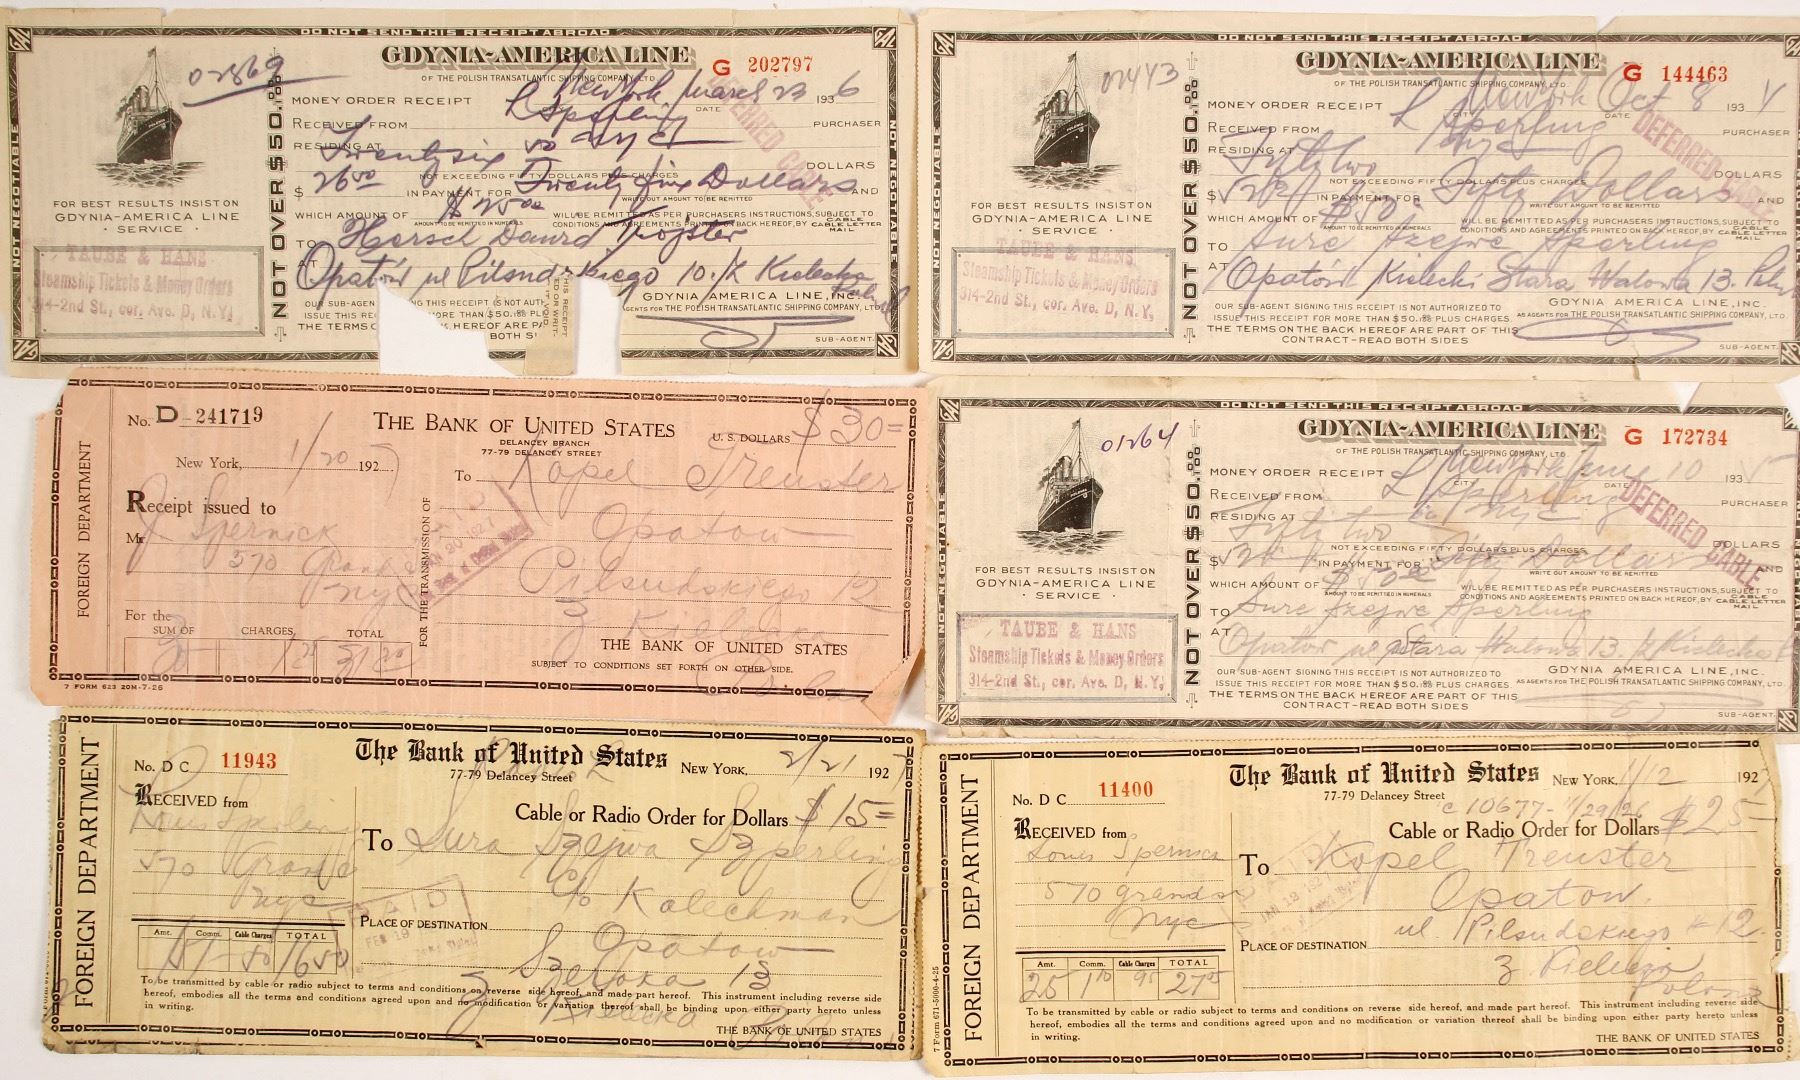 DO NOT SEND THIS RECEIPT ABROAD
02869
GDYNIA-AMERICA LINE
OF THE POLISH TRANSATLANTIC SHIPPING COMPANY, LTD.
G 202797
MONEY ORDER RECEIPT New York, March 23 1936
DATE
RECEIVED FROM L Sperling PURCHASER
RESIDING AT nyc
Twenty six 00 DOLLARS
NOT EXCEEDING FIFTY DOLLARS PLUS CHARGES
$ 26 00 IN PAYMENT FOR Twenty five Dollars AND
WRITE OUT AMOUNT TO BE REMITTED
WHICH AMOUNT OF $ 25 00 WILL BE REMITTED AS PER PURCHASERS INSTRUCTIONS, SUBJECT TO
AMOUNT TO BE REMITTED IN NUMERALS CONDITIONS AND AGREEMENTS PRINTED ON BACK HEREOF, BY CABLE CABLE LETTER MAIL
TO Hersch Dawid
AT Opatów ul Pilsudskiego 10. Z Kielecka
OUR SUB-AGENT
ING THIS RECEIPT IS NOT AUTH
ISSUE THIS REC
ORE THAN $50.00 PL
THE TERMS
HEREOF ARE PA
BOTH SI
GDYNIA AMERICA LINE, INC.
AGENTS FOR THE POLISH TRANSATLANTIC SHIPPING COMPANY, LTD.
SUB-AGENT.
NOT NEGOTIABLE
NOT OVER $50.00
NOT NEGOTIABLE
FOR BEST RESULTS INSIST ON
GDYNIA-AMERICA LINE
· SERVICE ·
TAUBE & HANS
Steamship Tickets & Money Orders
314-2nd St., cor. Ave. D, N.Y.
DEFERRED CABLE
DO NOT SEND THIS RECEIPT ABROAD
02443
GDYNIA-AMERICA LINE
OF THE POLISH TRANSATLANTIC SHIPPING COMPANY, LTD.
G 144463
MONEY ORDER RECEIPT New York Oct 8 193
CITY DATE
RECEIVED FROM L Sperling PURCHASER
RESIDING AT nyc
Fifty two DOLLARS
NOT EXCEEDING FIFTY DOLLARS PLUS CHARGES
$ 52 IN PAYMENT FOR Fifty Dollars AND
WRITE OUT AMOUNT TO BE REMITTED
WHICH AMOUNT OF $50 WILL BE REMITTED AS PER PURCHASERS INSTRUCTIONS, SUBJECT TO
AMOUNT TO BE REMITTED IN NUMERALS CONDITIONS AND AGREEMENTS PRINTED ON BACK HEREOF, BY CABLE CABLE LETTER MAIL
TO Sure Szejwe Sperling
AT Opatów Kielecki Stara Walowa 13.
OUR SUB-AGENT SIGNING THIS RECEIPT IS NOT AUTHORIZED TO
ISSUE THIS RECEIPT FOR MORE THAN $50.00 PLUS CHARGES
THE TERMS ON THE BACK HEREOF ARE PART OF THIS
CONTRACT-READ BOTH SIDES
GDYNIA AMERICA LINE, INC.
AS AGENTS FOR THE POLISH TRANSATLANTIC SHIPPING COMPANY, LTD.
SUB-AGENT.
NOT NEGOTIABLE
NOT OVER $50.00
FOR BEST RESULTS INSIST ON
GDYNIA-AMERICA LINE
· SERVICE ·
TAUBE & HANS
Steamship Tickets & Money Orders
314-2nd St., cor. Ave. D, N.Y.
DEFERRED CABLE
FOREIGN DEPARTMENT
No. D-241719
THE BANK OF UNITED STATES
DELANCEY BRANCH
77-79 DELANCEY STREET
U.S. DOLLARS $30=
New York, 1/20 1927
To Kopel Treuster
Receipt issued to
Opatow
Mr. J Spernick
Pilsudskiego 12
570 Grand
z Kielecka
nyc
FOR THE TRANSMISSION OF
For the
SUM OF CHARGES, TOTAL
30 1 20 31 20
THE BANK OF UNITED STATES
SUBJECT TO CONDITIONS SET FORTH ON OTHER SIDE.
7 FORM 623 20M-7-26
DO NOT SEND THIS RECEIPT ABROAD
01264
GDYNIA-AMERICA LINE
OF THE POLISH TRANSATLANTIC SHIPPING COMPANY, LTD.
G 172734
MONEY ORDER RECEIPT New York 10 193
CITY DATE
RECEIVED FROM L Sperling PURCHASER
RESIDING AT nyc
Fifty two DOLLARS
NOT EXCEEDING FIFTY DOLLARS PLUS CHARGES
$ IN PAYMENT FOR Dollars AND
WRITE OUT AMOUNT TO BE REMITTED
WHICH AMOUNT OF $50 00 WILL BE REMITTED AS PER PURCHASERS INSTRUCTIONS, SUBJECT TO
AMOUNT TO BE REMITTED IN NUMERALS CONDITIONS AND AGREEMENTS PRINTED ON BACK HEREOF, BY CABLE CABLE LETTER MAIL
TO Sure Szejwe Sperling
AT Opatow ul Stara Walowa 13. Z Kielecka
OUR SUB-AGENT SIGNING THIS RECEIPT IS NOT AUTHORIZED TO
ISSUE THIS RECEIPT FOR MORE THAN $50.00 PLUS CHARGES
THE TERMS ON THE BACK HEREOF ARE PART OF THIS
CONTRACT-READ BOTH SIDES
GDYNIA AMERICA LINE, INC.
AS AGENTS FOR THE POLISH TRANSATLANTIC SHIPPING COMPANY, LTD.
SUB-AGENT.
NOT NEGOTIABLE
NOT OVER $50.00
FOR BEST RESULTS INSIST ON
GDYNIA-AMERICA LINE
· SERVICE ·
TAUBE & HANS
Steamship Tickets & Money Orders
314-2nd St., cor. Ave. D, N.Y.
DEFERRED CABLE
FOREIGN DEPARTMENT
No. D C 11943
The Bank of United States
77-79 Delancey Street
NEW YORK, 2/21 1927
RECEIVED from
Cable or Radio Order for Dollars $15=
Louis Sperling
To Sura Szejwa Szperling
570 Grand
c/o Kalechman
nyc
PLACE OF DESTINATION Opatow
PAID
FEB 19
Amt. Comm. Cable Charges TOTAL
15 1 50 16 50
13
z Kielecka
To be transmitted by cable or radio subject to terms and conditions on reverse side hereof, and made part hereof. This instrument including reverse side
hereof, embodies all the terms and conditions agreed upon and no modification or variation thereof shall be binding upon either party hereto unless
in writing.
THE BANK OF UNITED STATES
FOREIGN DEPARTMENT
No. D C 11400
The Bank of United States
77-79 Delancey Street
NEW YORK, 1/12 1927
C 10677- 11/29/26
RECEIVED from
Cable or Radio Order for Dollars $25=
Louis Spernick
To Kopel Treuster
570 grand st
Opatow.
nyc
ul Pilsudskiego #12
PLACE OF DESTINATION
z
Amt. Comm. Cable Charges TOTAL
25 1 10 95 27 05
To be transmitted by cable or radio subject to terms and conditions on reverse side hereof, and made part hereof. This instrument including reverse side
hereof, embodies all the terms and conditions agreed upon and no modification or variation thereof shall be binding upon either party hereto unless
in writing.
THE BANK OF UNITED STATES
7 Form 671-5000-4-25